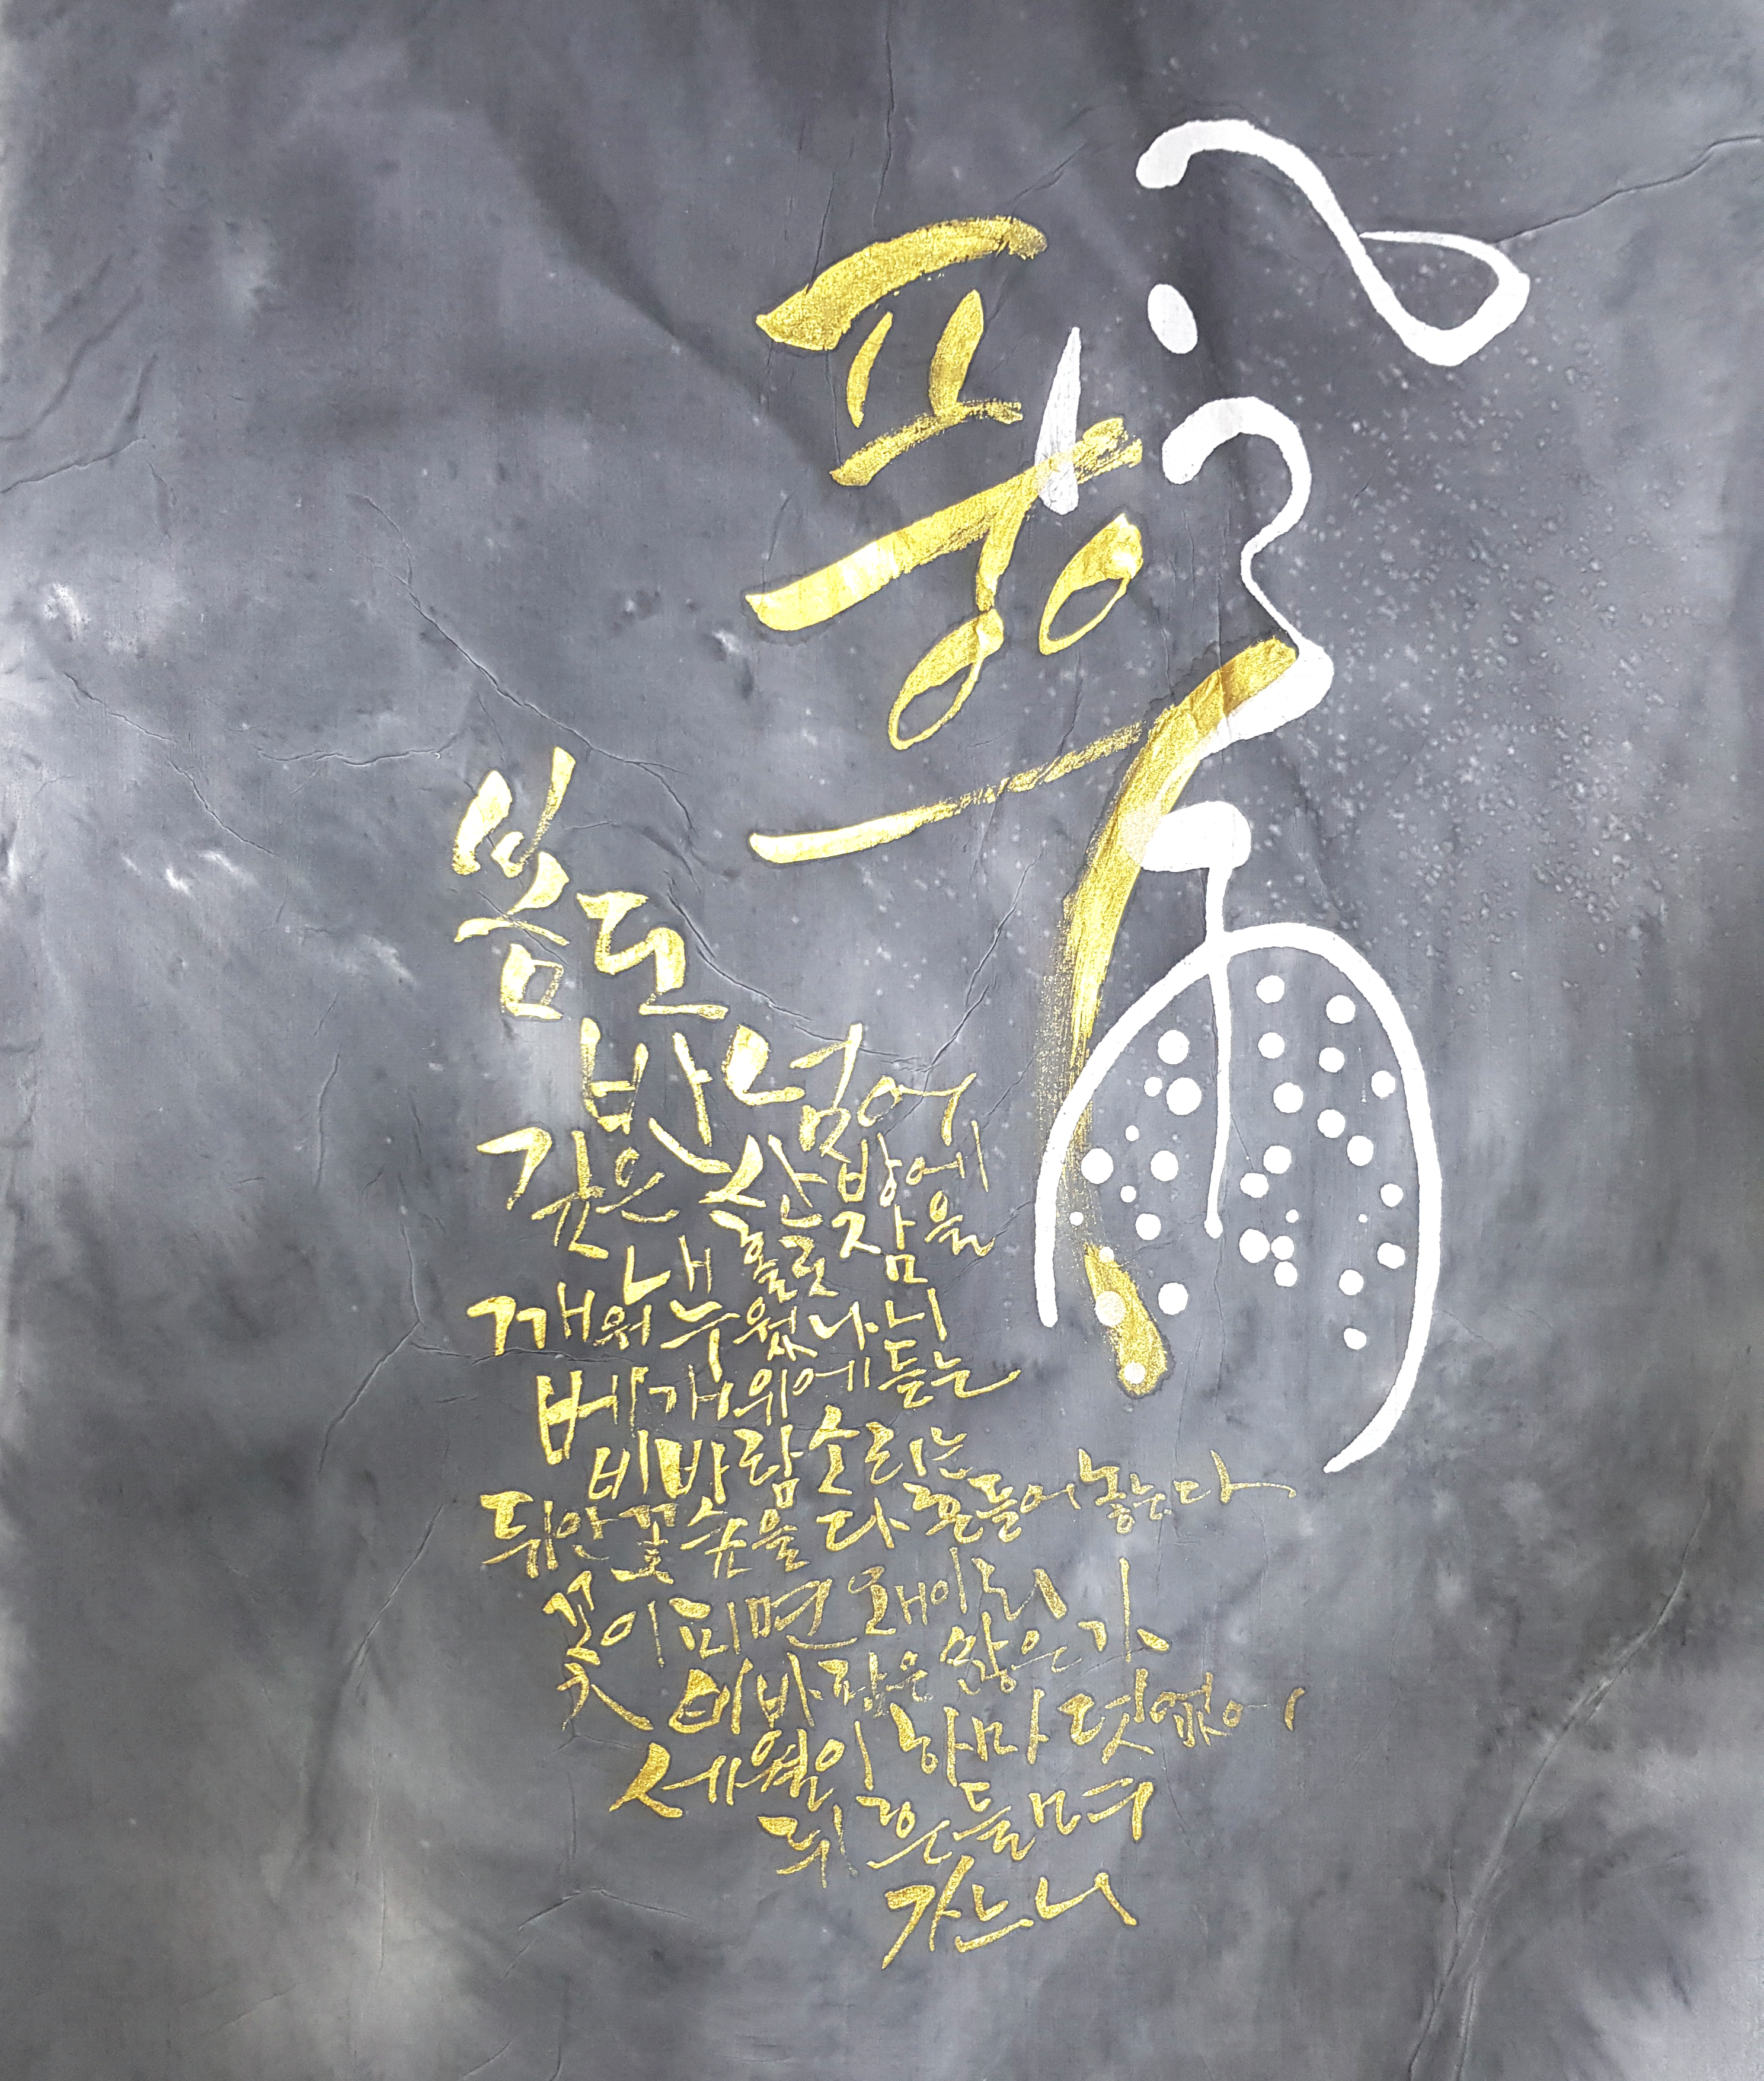 풍우
雨
봄도
반 넘어
깊은 산방에
홀로 잠을
깨워 내 누웠나니
베개 위에 듣는
비바람 소리는
뒤안 꽃 숲을 다 흔들어 놓는다
꽃이 피면 왜 이리
비바람은 많은가
세월이 하마 덧없어
뒤흔들며
가느니